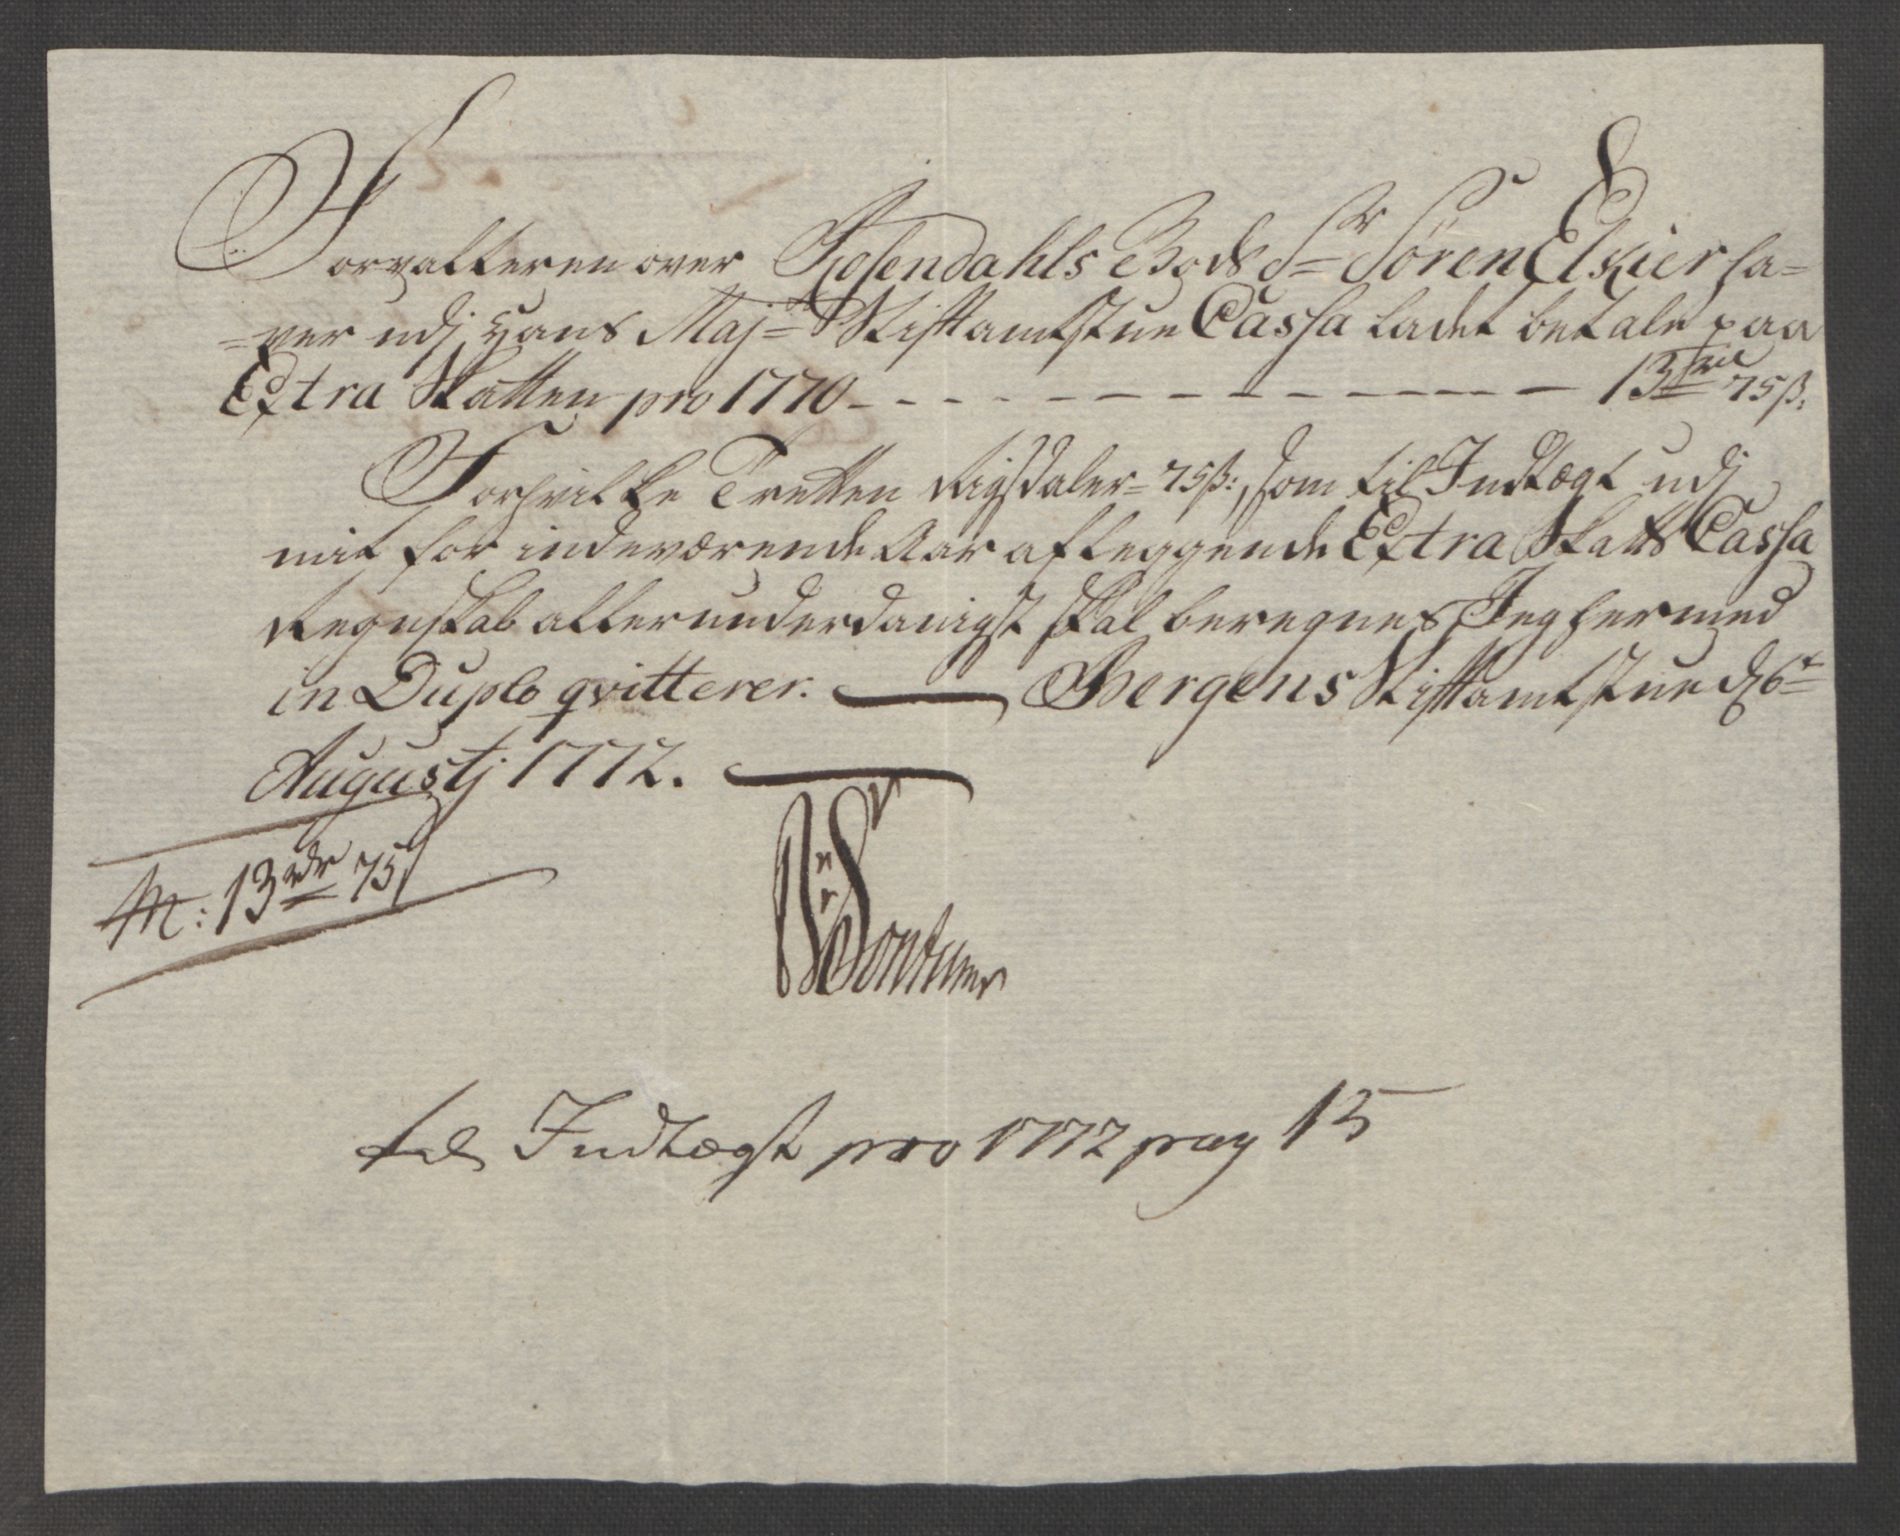 Forvalteren over Rosendahls Gods Sr Søren Elskier ha=
=ver udj Hans Majts Stiftamtstue Cassa ladet betale paa
Extra Skatten pro 1770 - - - - - - - - - - - 13 rd 75 ß:
Forhvilke Tretten Rigsdaler 75 ß:, som til Indtægt udj
mit for indeværende Aar aflæggende Extra Skatts Cassa
Regnskab allerunderdanigst skal beregnes, Jeg hermed
in Duplo qvitterer. Bergens Stiftamtstue d 6t
Augustj 1772.
13 rdr 75
til Indtægt pro 1772 pag 15